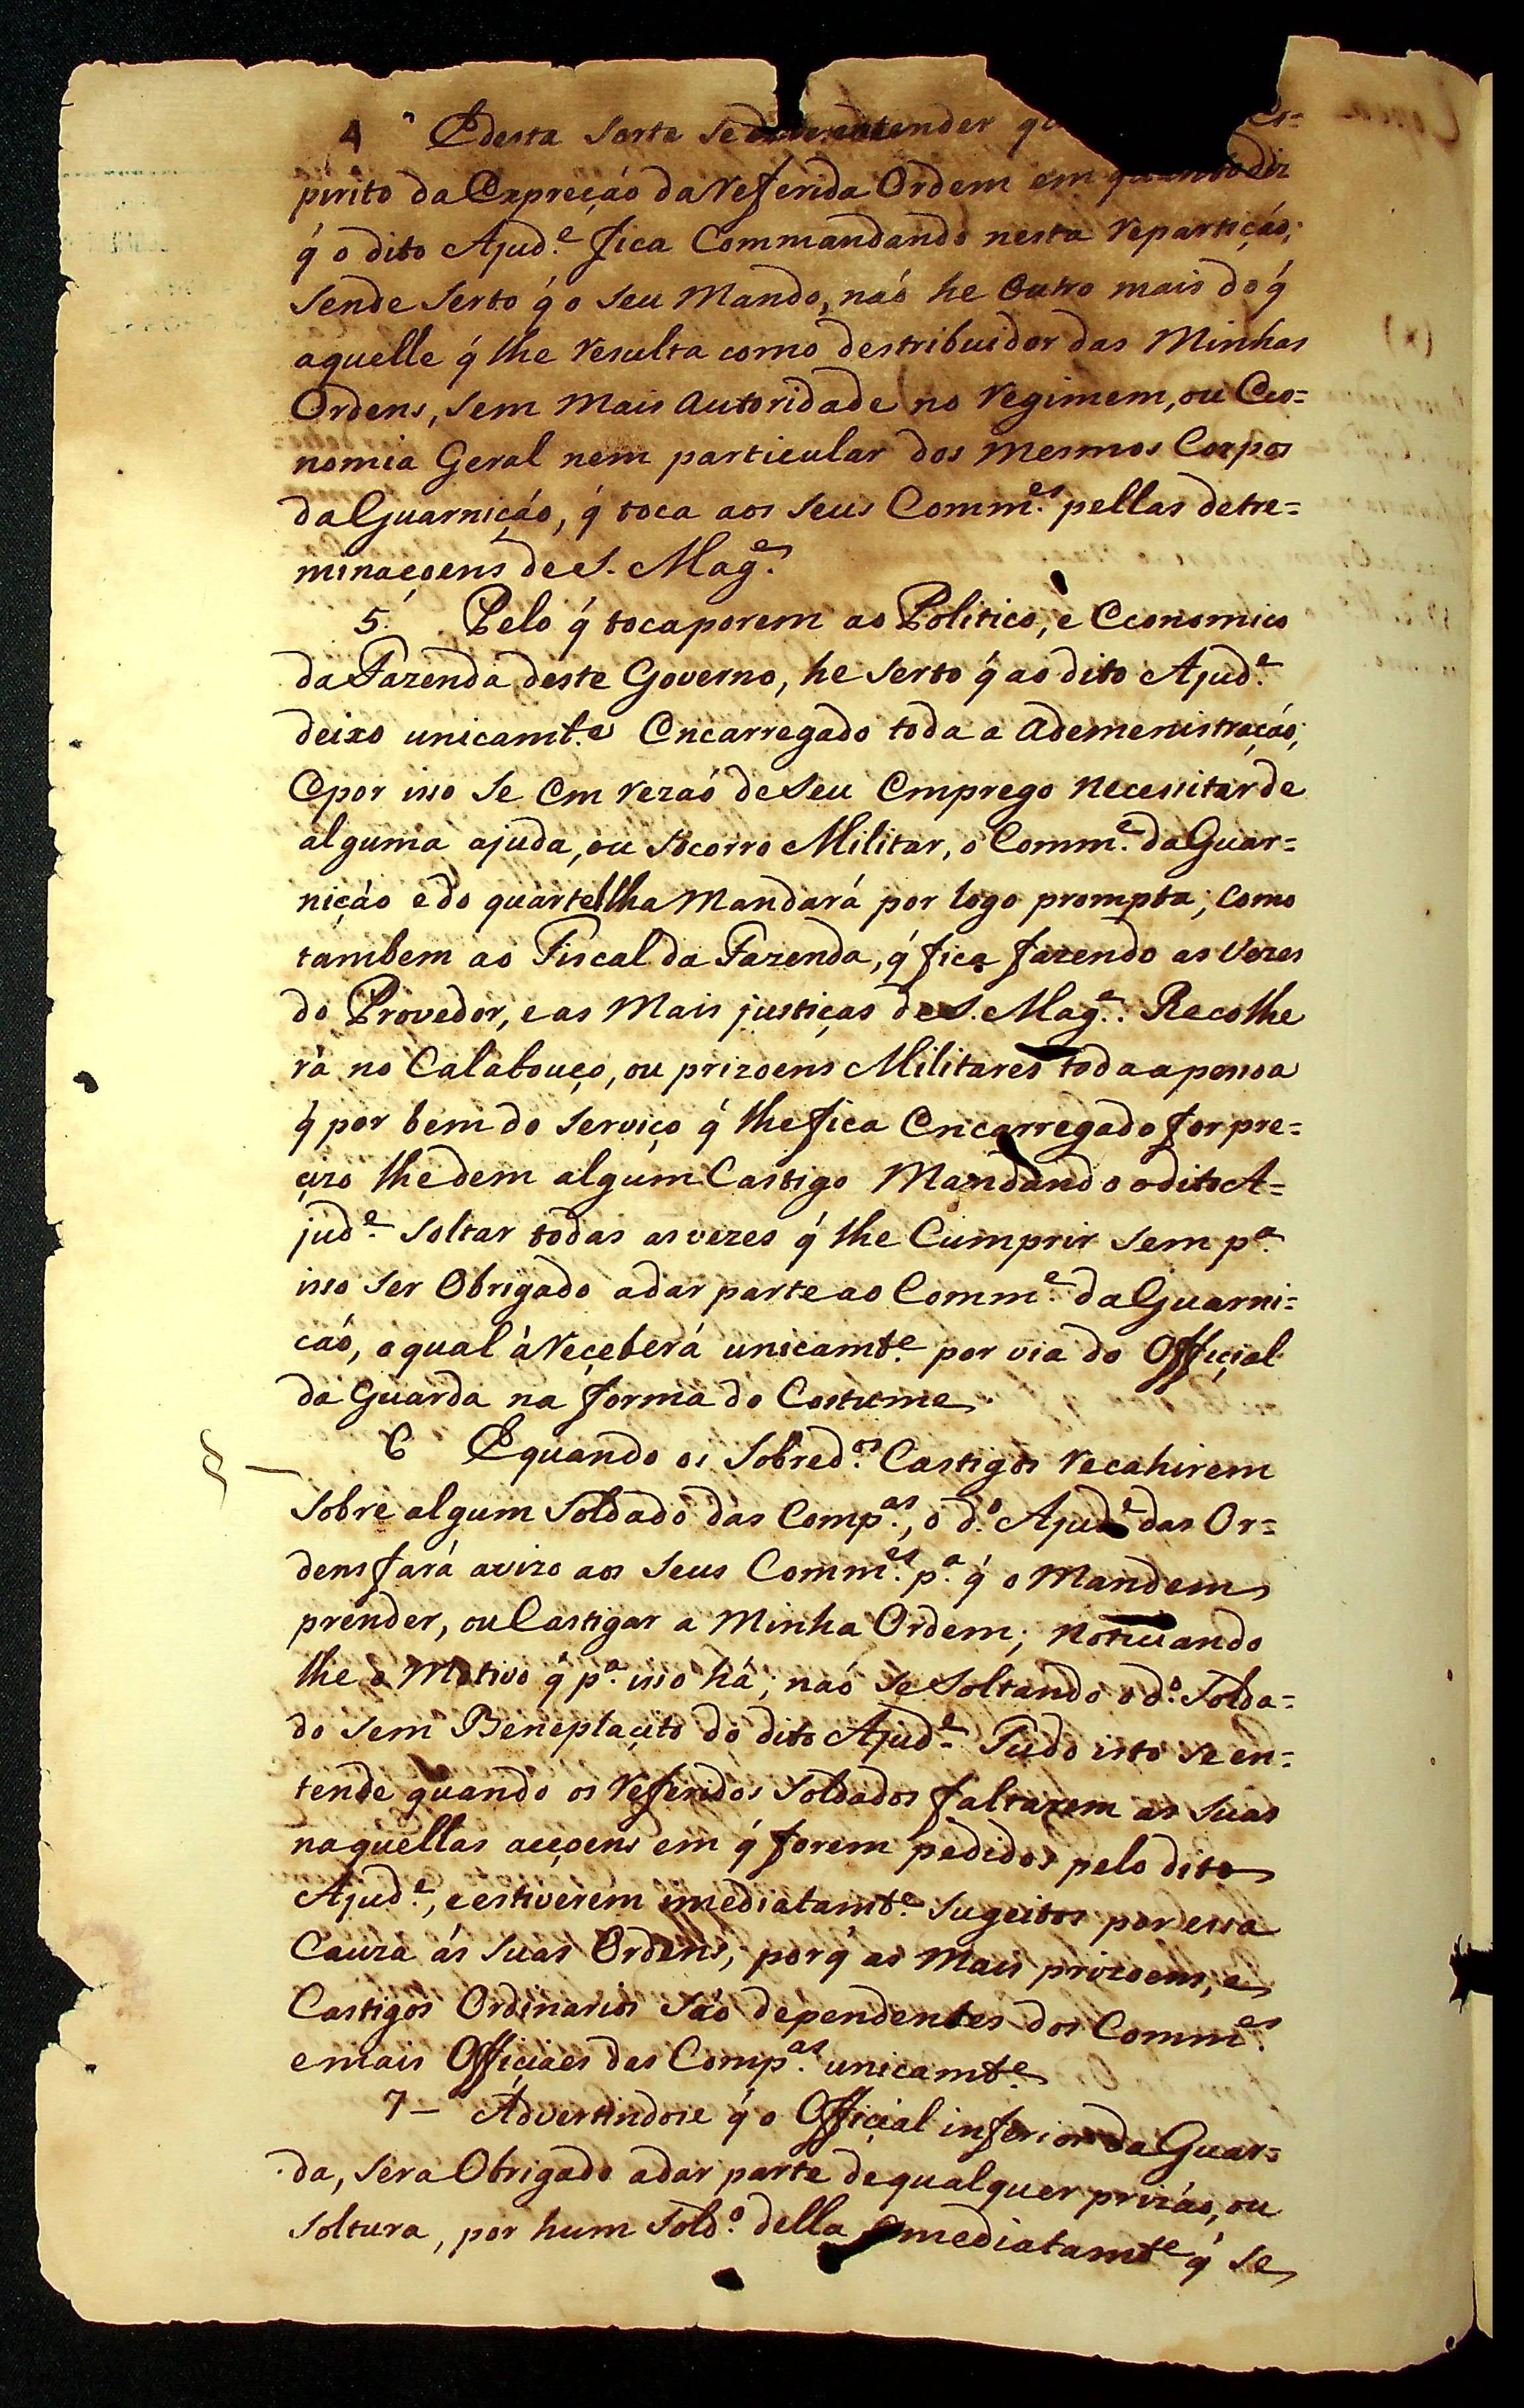 4 Edesta Sorte se deve entender es=
pirito da Expreçáo da referida Ordem em quanto diz
q́ o dito Ajud.e fica Commandando nesta repartiçáo;
sende serto q́ o seu Mando, naó he outro mais do q́
aquelle q́ lhe resulta como destribuidor das Minhas
Ordens, sem mais autoridade no regimem, ou Eco=
nomia Geral nem particular dos mesmos Corpos
da Guarniçáo, q́ toca aos seus Comm.es pellas detre=
minaçoens de S. Mag.e
5. Pelo q́ toca porem ao Politico, e Economico
da Fazenda deste Governo, he serto q́ ao dito Ajud.e
deixo unicamt.e Encarregado toda a ademenistraçáo;
Epor isso se Em rezaó de seu Emprego necessitar de
alguma ajuda, ou socorro Militar, o Comm.e da Guar=
niçáo e do quartel lha Mandará por logo prompta; como
tambem ao Fiscal da Fazenda, q́ fica fazendo as vezes
do Provedor, e as Mais justiças de S. Mag.e. Recolhe
rá no Calabouço, ou prizoens Militares toda a pessoa
q́ por bem do serviço q́ lhe fica Encarregado for pre=
çizo lhe dem algum Castigo Mandando o dito A=
jud.e soltar todas as vezes q́ lhe Cumprir sem p.a
isso ser Obrigado a dar parte ao Comm.e da Guarni=
cáo, o qual à reçeberá unicamt.e por via do Offiçial
da Guarda na forma do Costume.
§ — 6 E quando os sobred.os Castigos recahirem
sobre algum Soldado das Comp.as, o d.o Ajud.e das Or=
dens fará avizo aos seus Comm.es p.a q́ o Mandem
prender, ou Castigar a Minha Ordem; noticiando
lhe o Motivo q́ p.a isso há; naó se soltando o d.o Solda=
do sem Beneplaçito do dito Ajud.e Tudo isto se en=
tende quando os referidos Soldados faltarem as suas
naquellas acçoens em q́ forem pedidos pelo dito
Ajud.e, e estiverem imediatamt.e sugeitos por essa
Cauza ás suas Ordens; porq́ as Mais prizoens, e
Castigos Ordinarios saó dependentes dos Comm.es
e mais Offiçiaes das Comp.as unicamt.e
7 — Advertindose q́ o Offiçial inferior da Guar=
da, sera Obrigado a dar parte de qualquer prizáo, ou
soltura, por hum Sold.o della imediatamt.e q́ se